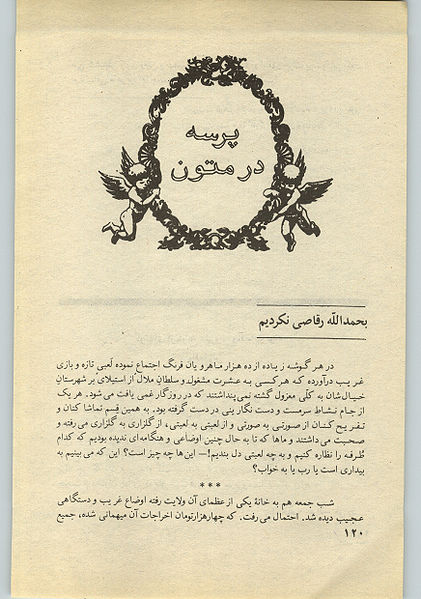 پرسه
در متون
بحمدالله رقاصی نکردیم
در هر گوشه زیاده از ده هزار ماهرویان فرنگ اجتماع نموده لعبی تازه و بازی
غریب درآورده که هر کسی به عشرت مشغول و سلطان ملال از استیلای بر شهرستان
خیال‌شان به کلّی معزول گشته نمی‌پنداشتند که در روزگار غمی یافت می شود. هر یک
از جام نشاط سرمست و دست نگار ینی در دست گرفته بود. به همین قِسم تماشا کنان و
تفریح کنان از صورتی به صورتی و از لعبتی به لعبتی، از گلزاری به گلزاری می‌رفته و
صحبت می داشتند و ماها که تا به حال چنین اوضاعی و هنگامه‌ای ندیده بودیم که کدام
طُرفه را نظاره کنیم و به چه لعبتی دل بندیم!— این‌ها چه چیز است؟ این که می بینیم به
بیداری است یا رب یا به خواب؟
***
شب جمعه هم به خانهٔ یکی از عظمای آن ولایت رفته اوضاع غریب و دستگاهی
عجیب دیده شد. احتمال می‌رفت. که چهارهزارتومان اخراجات آن میهمانی شده، جمیع
۱۲۰